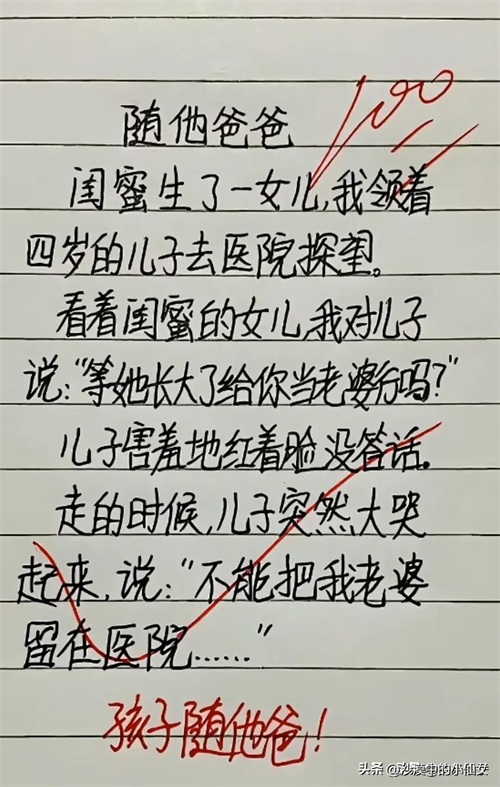 100
随他爸爸
闺蜜生了一女儿,我领着
四岁的儿子去医院探望。
看着闺蜜的女儿,我对儿子
说:“等她长大了给你当老婆行吗?”
儿子害羞地红着脸没答话。
走的时候,儿子突然大哭
起来,说:“不能把我老婆
留在医院……”
孩子随他爸!
头条 @